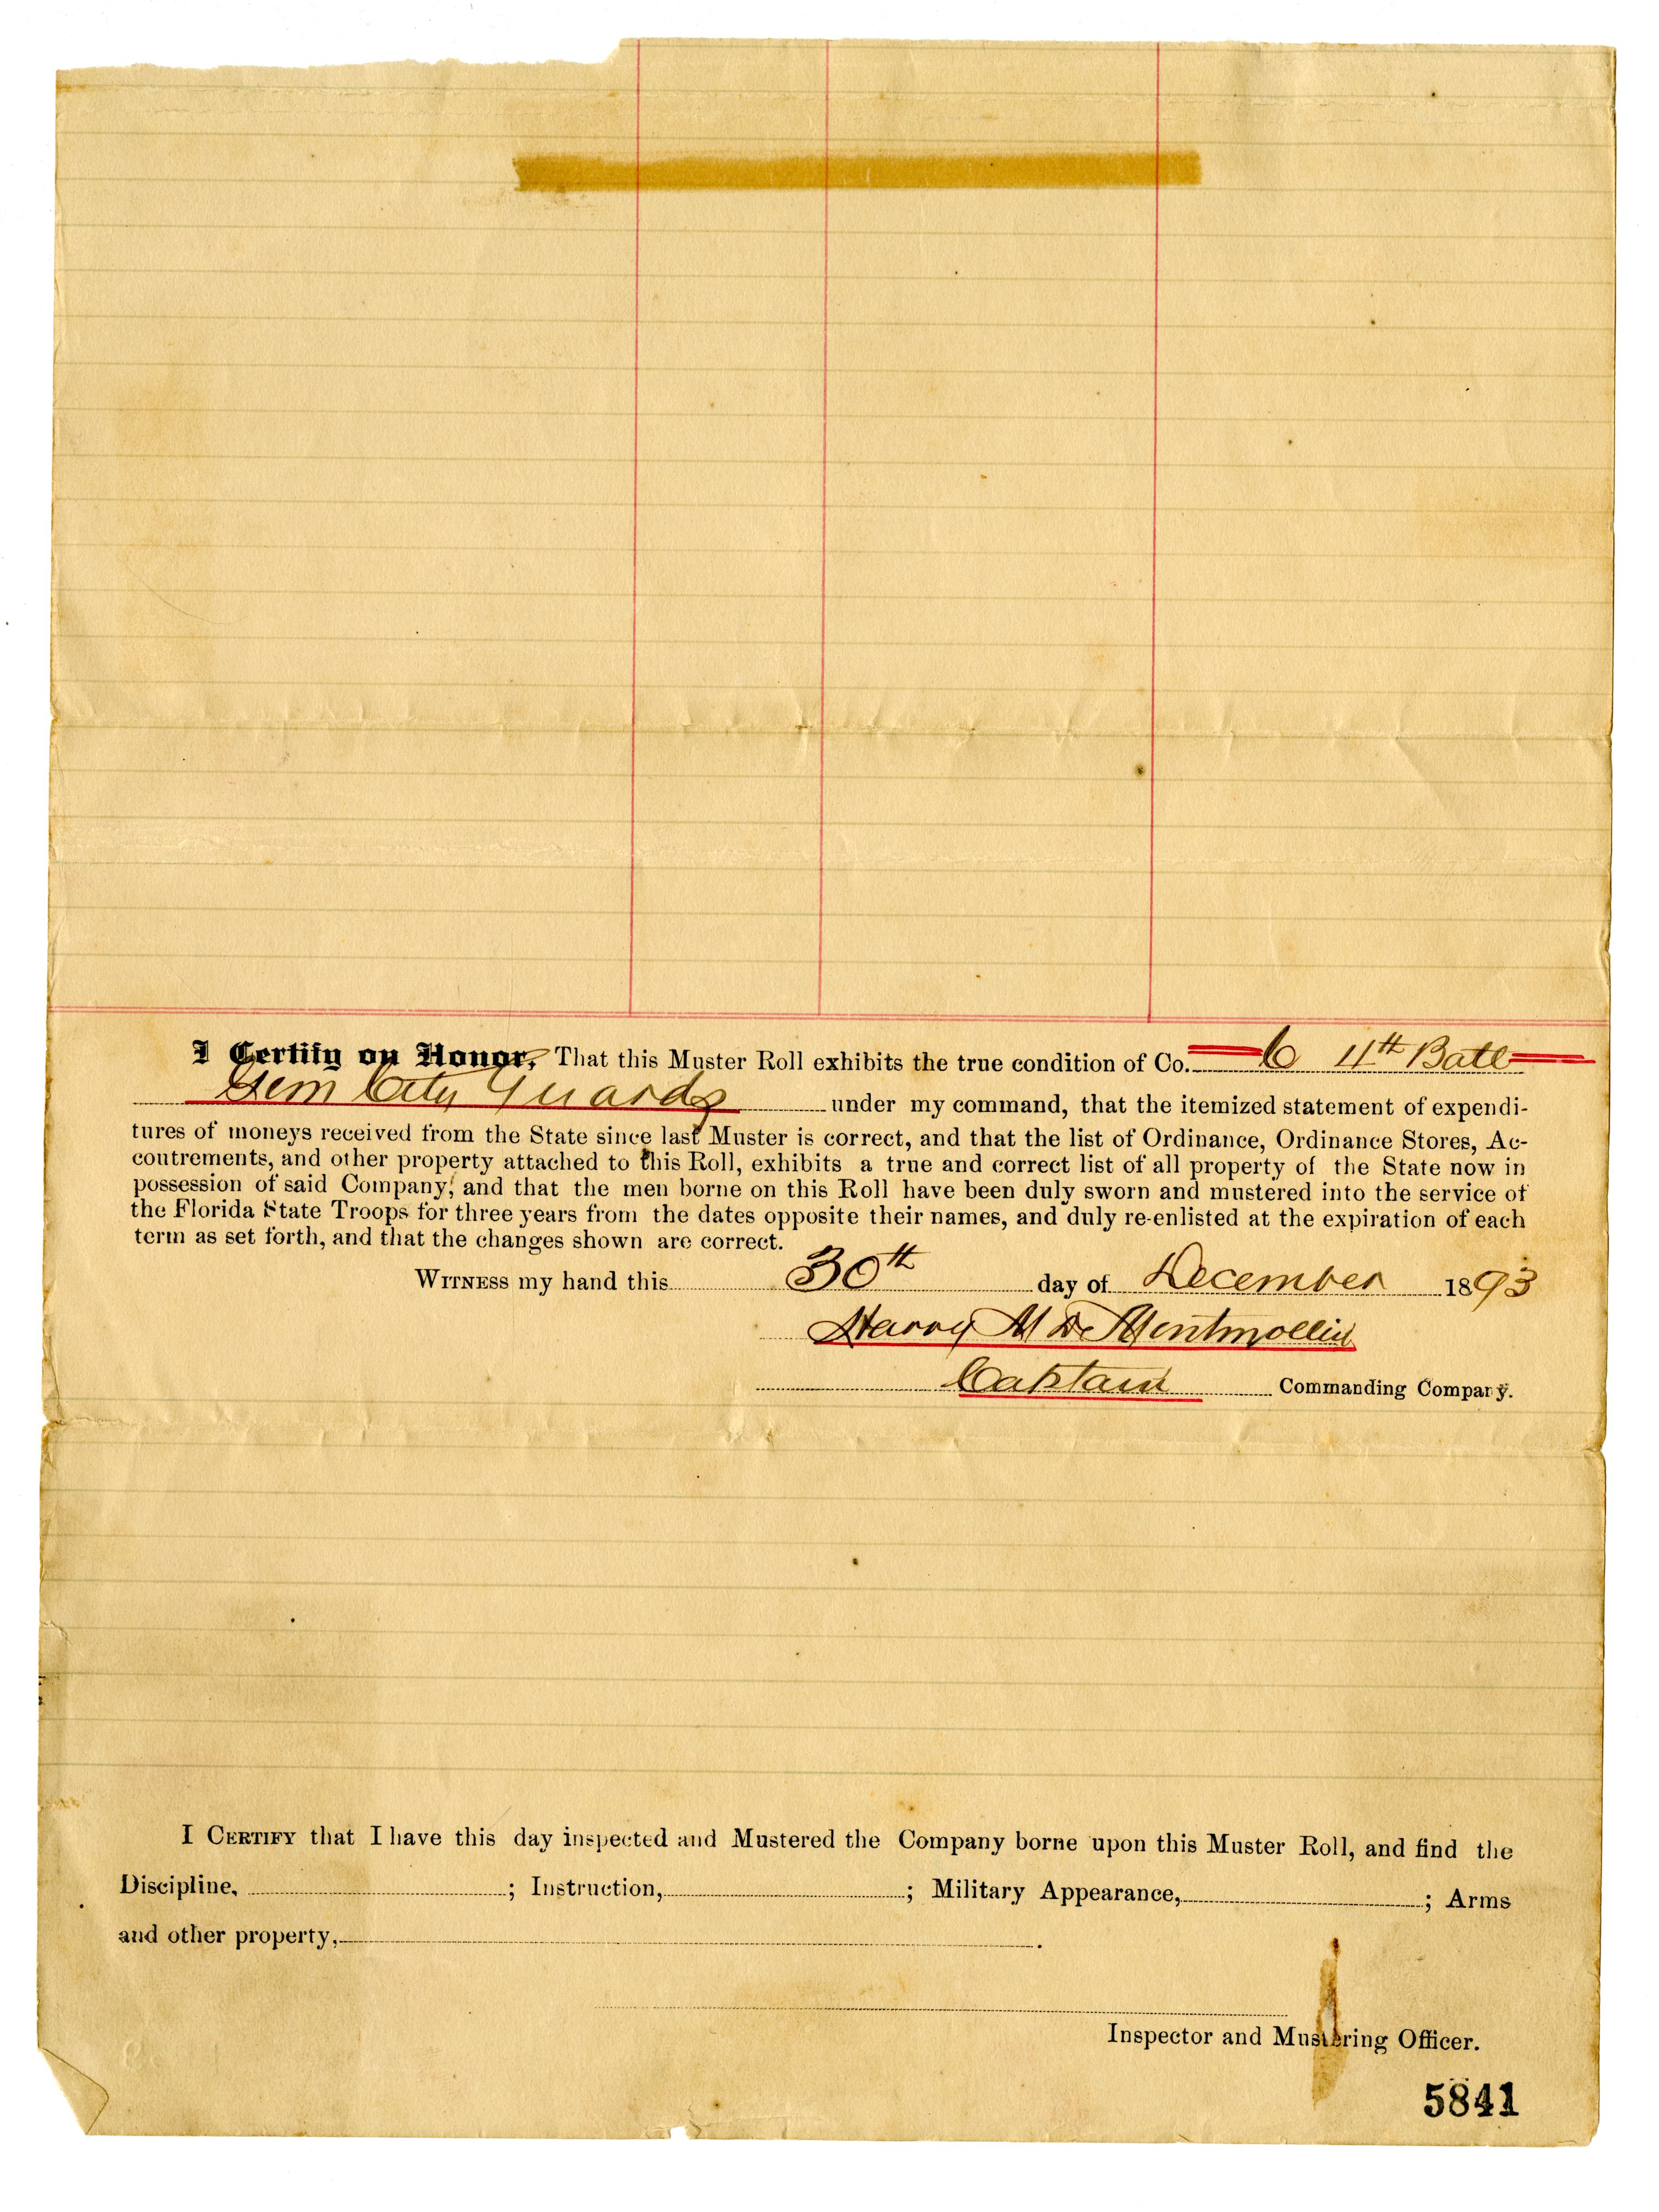 I Certify on Honor, That this Muster Roll exhibits the true condition of Co. C 4th Batl
Gem City Guards under my command, that the itemized statement of expendi-
tures of moneys received from the State since last Muster is correct, and that the list of Ordinance, Ordinance Stores, Ac-
coutrements, and other property attached to this Roll, exhibits a true and correct list of all property of the State now in
possession of said Company, and that the men borne on this Roll have been duly sworn and mustered into the service of
the Florida State Troops for three years from the dates opposite their names, and duly re-enlisted at the expiration of each
term as set forth, and that the changes shown are correct.
WITNESS my hand this 30th day of December 1893
Harry M De Montmollin
Captain Commanding Company.
I CERTIFY that I have this day inspected and Mustered the Company borne upon this Muster Roll, and find the
Discipline, ; Instruction, ; Military Appearance, ; Arms
and other property, .
Inspector and Mustering Officer.
5841